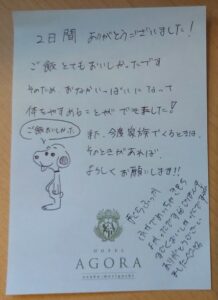 2日間 ありがとうございました!
ご飯 とてもおいしかったです
そのため、おなかいっぱいになって
体をやすめることができました!
ご飯おいしかった
また、今度家族でくるときは、
そのときがあれば、
よろしくお願いします!!
HOTEL
AGORA
osaka moriguchi
ありがとうございました